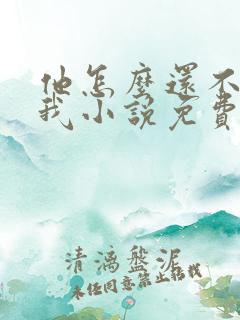 他怎麼還不
我小說免費
清漓盤泥
未经同意禁止搭我